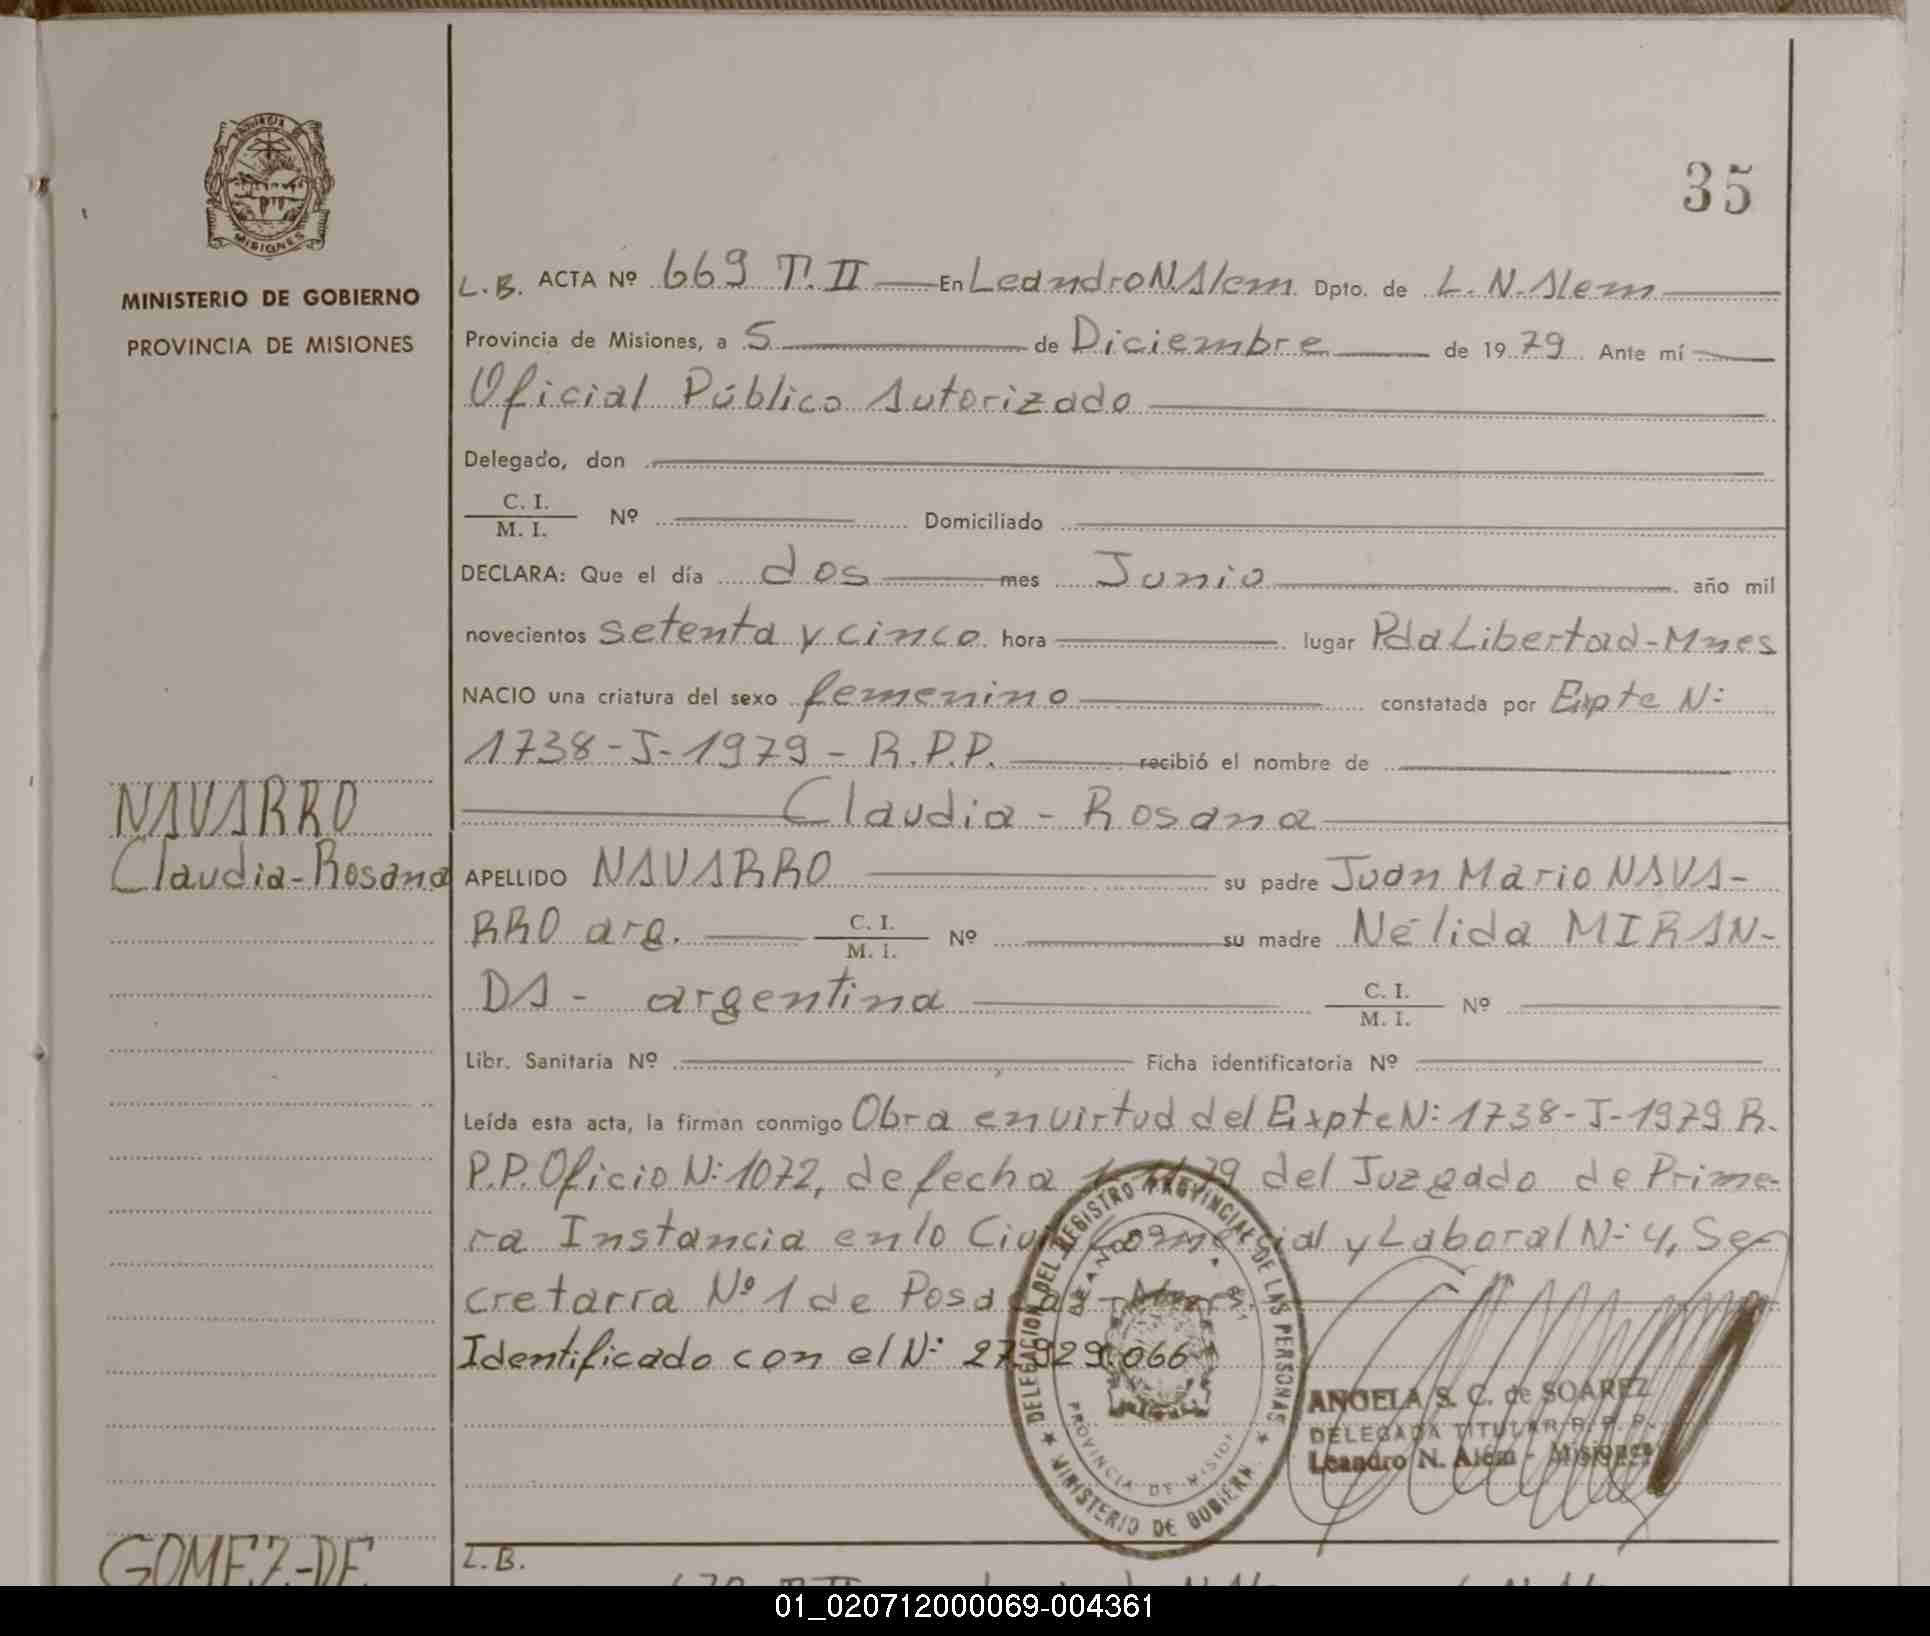 35
PROVINCIA DE
MISIONES
MINISTERIO DE GOBIERNO
PROVINCIA DE MISIONES
L.B. ACTA Nº 669 T. II En Leandro N. Alem Dpto. de L. N. Alem
Provincia de Misiones, a 5 de Diciembre de 1979 Ante mí
Oficial Público Autorizado
Delegado, don
C. I.
M. I. Nº Domiciliado
DECLARA: Que el día dos mes Junio año mil
novecientos setenta y cinco hora lugar Pda Libertad-Mnes
NACIO una criatura del sexo femenino constatada por Expte N:
1738-J-1979-R.P.P. recibió el nombre de
Claudia - Rosana
NAVARRO
Claudia-Rosana
APELLIDO NAVARRO su padre Juan Mario NAVA-
RRO arg. C. I. M. I. Nº su madre Nélida MIRAN-
DA - argentina C. I. M. I. Nº
Libr. Sanitaria Nº Ficha identificatoria Nº
Leída esta acta, la firman conmigo Obra en virtud del Expte N: 1738-J-1979 R.
P.P. Oficio N: 1072, de fecha 79 del Juzgado de Prime-
ra Instancia en lo Civil Comercial y Laboral N: 4, Se-
cretarra Nº 1 de Posadas - Mnes.
Identificado con el N: 27.929.066
DELEGACION DEL REGISTRO PROVINCIAL DE LAS PERSONAS
MINISTERIO DE GOBIERNO
PROVINCIA DE MISIONES
ANGELA S. C. de SOAREZ
DELEGADA TITULAR R. P. P.
Leandro N. Alem - Misiones
GOMEZ-DE
L.B.
01_020712000069-004361